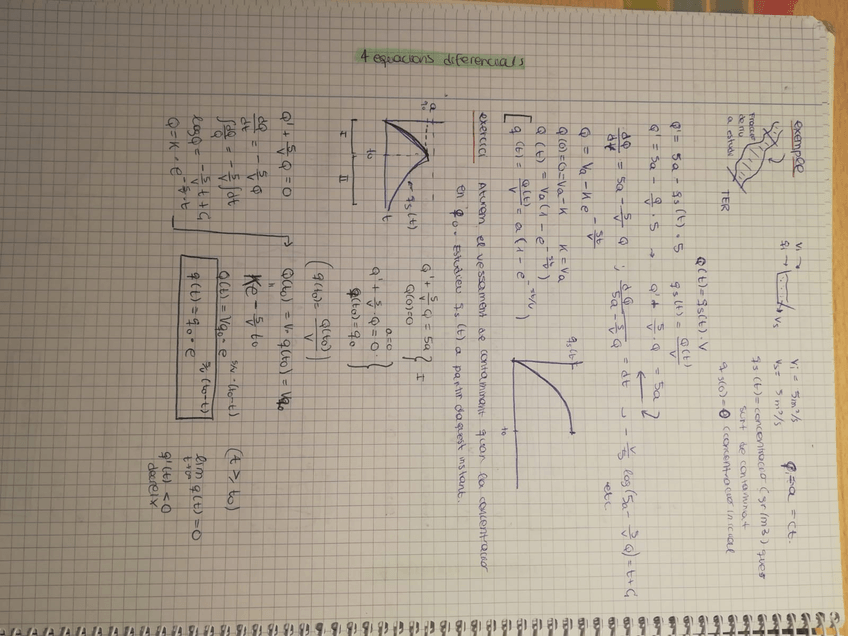 4 equacions diferencials
exemple
TER
Vi → → Vs
qi →
Vi = 5m³/s qi = a = ct.
Vs = 5m³/s
qs(t) = concentració (gr/m3) que
surt de contaminant
qs(0) = 0 (concentració inicial
Q(t) = qs(t) · V
Q' = 5a - qs(t) · 5 qs(t) = Q(t)/V
Q' = 5a - Q/V · 5 → Q' + 5/V Q = 5a
dQ/dt = 5a - 5/V Q ; dQ/(5a - 5/V Q) = dt → - V/5 log(5a - 5/V Q) = t + C1
etc
Q = Va - K e^(-5t/V)
Q(0) = 0 = Va - K K = Va
Q(t) = Va (1 - e^(-5t/V))
q(t) = Q(t)/V = a (1 - e^(-5t/V))
qs(t)
t0
exercici Aturem el vessament de contaminant quan la concentració
en q0. estudieu qs(t) a partir d'aquest instant.
a
q0
qs(t)
t0
t
I II
Q' + 5/V Q = 5a } I
Q(0) = 0
a = 0
Q' + 5/V · Q = 0 }
q(t0) = q0
(q(t0) = Q(t0)/V)
Q' + 5/V Q = 0
dQ/dt = - 5/V Q
∫ dQ/Q = - 5/V ∫ dt
log Q = - 5/V t + C1
Q = K · e^(-5/V · t)
Q(t0) = V · q(t0) = Vq0
"
K e^(- 5/V t0)
Q(t) = Vq0 · e^(5/V · (t0-t))
q(t) = q0 · e^(5/V (t0-t))
(t ≥ t0)
lim t→∞ q(t) = 0
q'(t) < 0
decreix